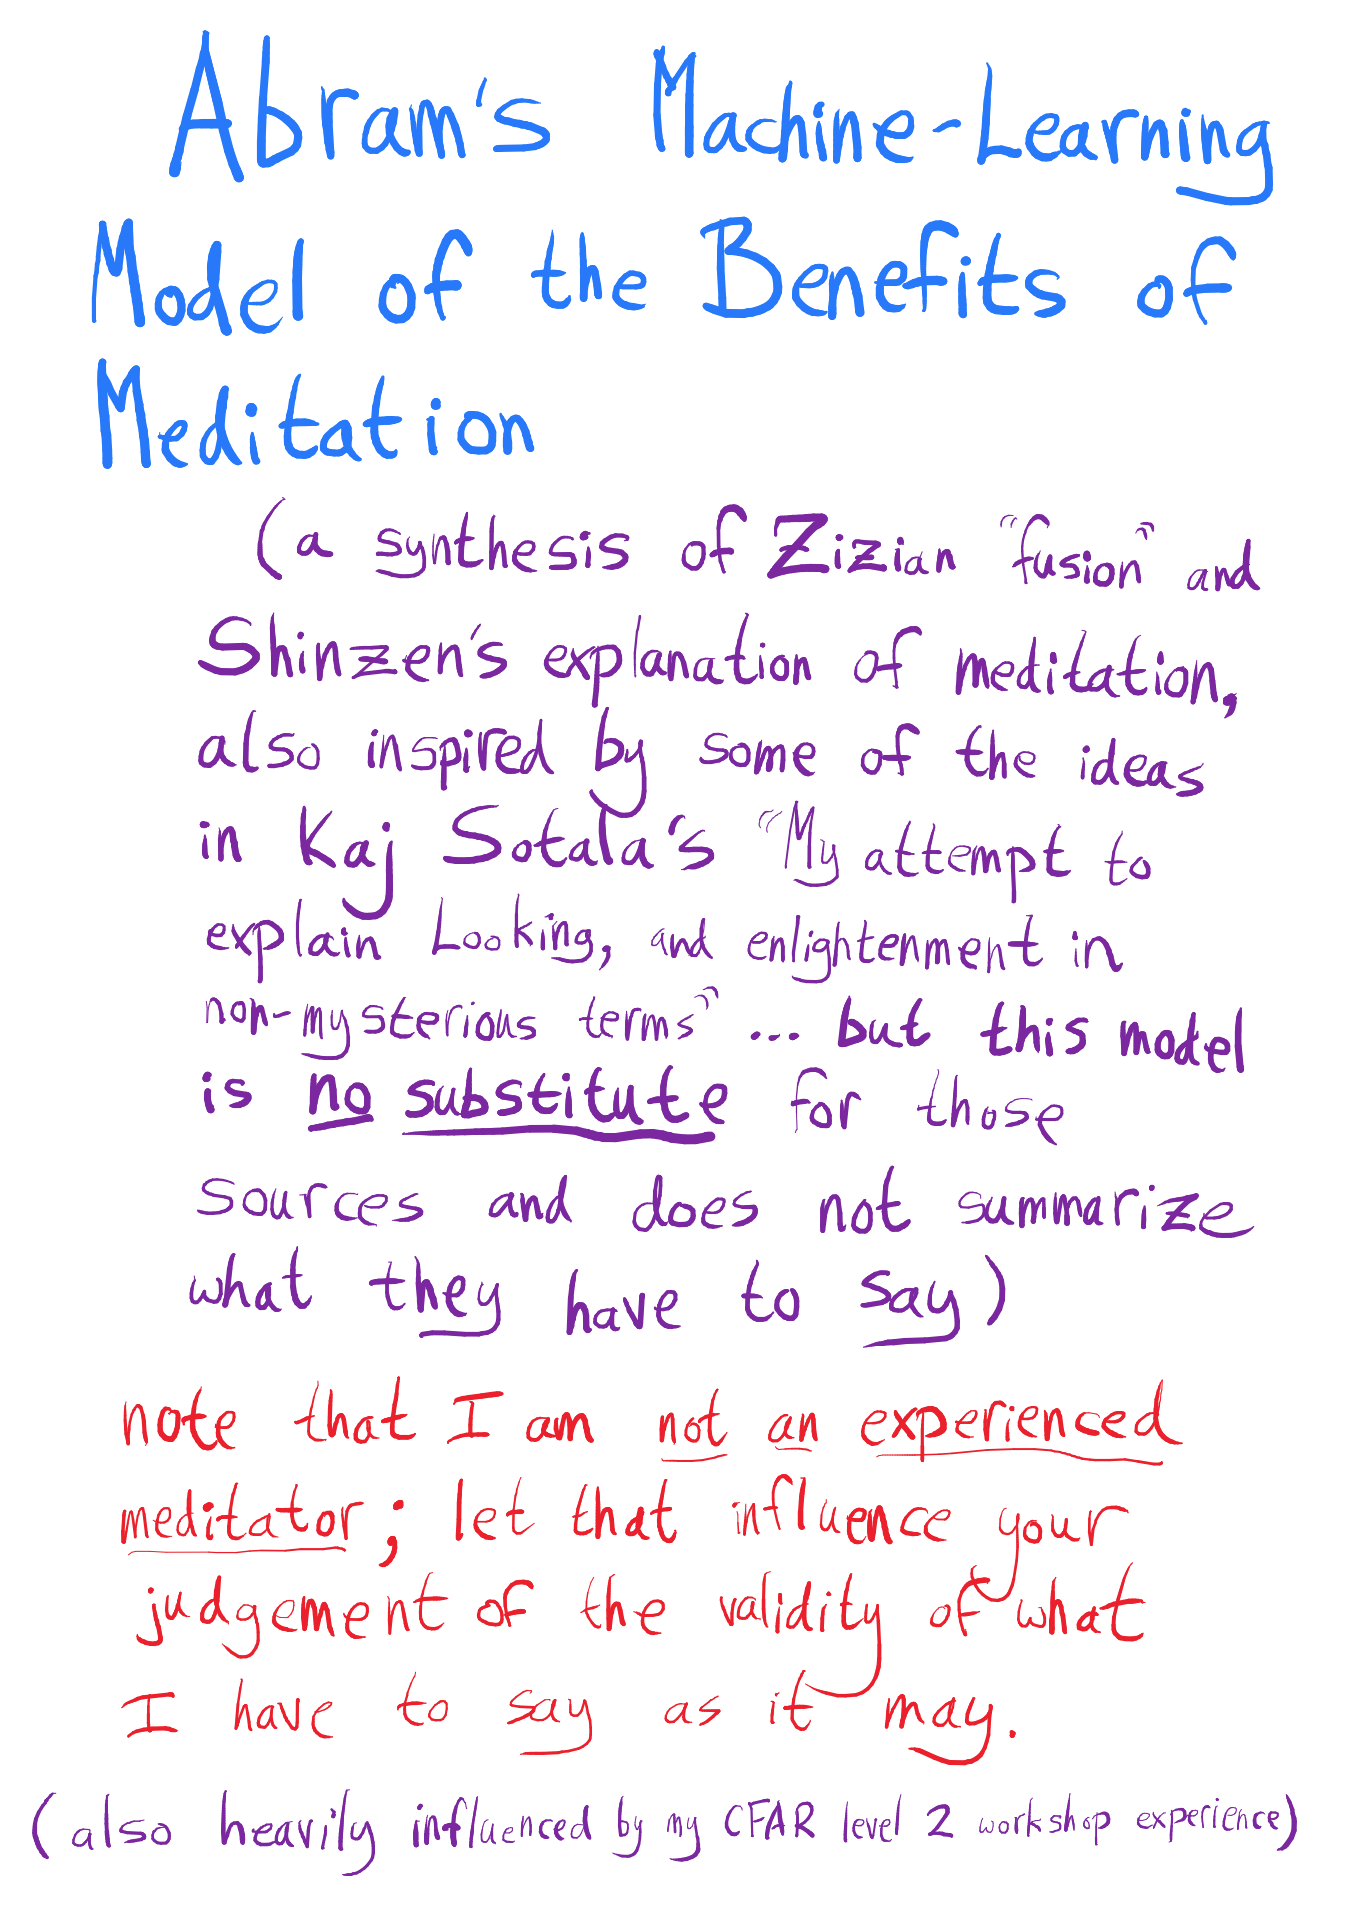 Abram's Machine-Learning
Model of the Benefits of
Meditation
(a synthesis of Zizian "fusion" and
Shinzen's explanation of meditation,
also inspired by some of the ideas
in Kaj Sotala's "My attempt to
explain Looking, and enlightenment in
non-mysterious terms" ... but this model
is no substitute for those
sources and does not summarize
what they have to say)
note that I am not an experienced
meditator; let that influence your
judgement of the validity of what
I have to say as it may.
(also heavily influenced by my CFAR level 2 workshop experience)